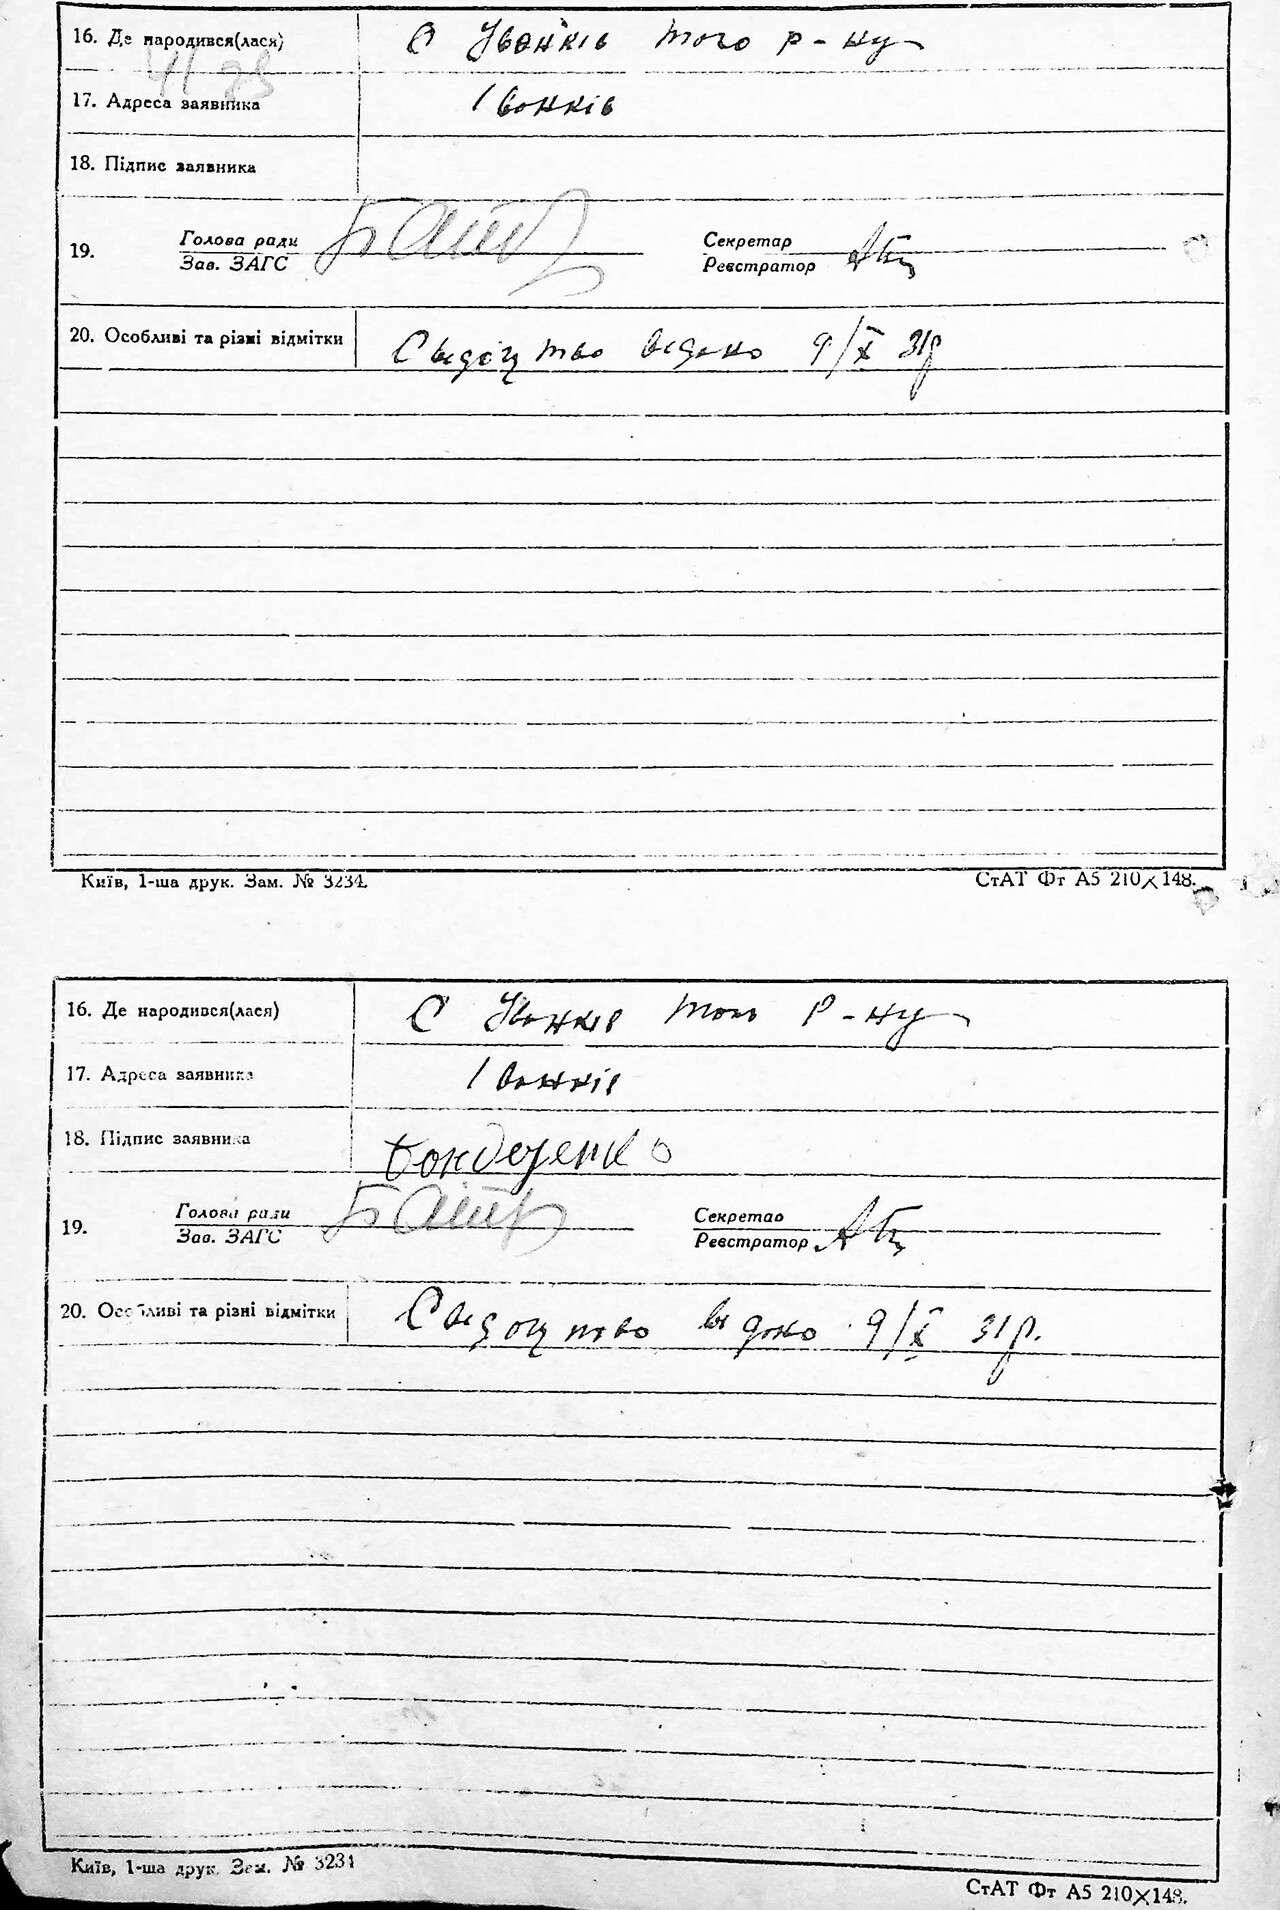 16. Де народився(лася) С Іванків того р-ну
17. Адреса заявника Іванків
18. Підпис заявника
19. Голова ради Секретар
Зав. ЗАГС Реєстратор
20. Особливі та різні відмітки Свідоцтво видано 9/X 31р
Київ, 1-ша друк. Зам. № 3234. СтАТ Фт А5 210×148.
16. Де народився(лася) С Іванків того р-ну
17. Адреса заявника Іванків
18. Підпис заявника Бондаренко
19. Голова ради Секретар
Зав. ЗАГС Реєстратор
20. Особливі та різні відмітки Свідоцтво видано 9/X 31р.
Київ, 1-ша друк. Зам. № 3234 СтАТ Фт А5 210×148.